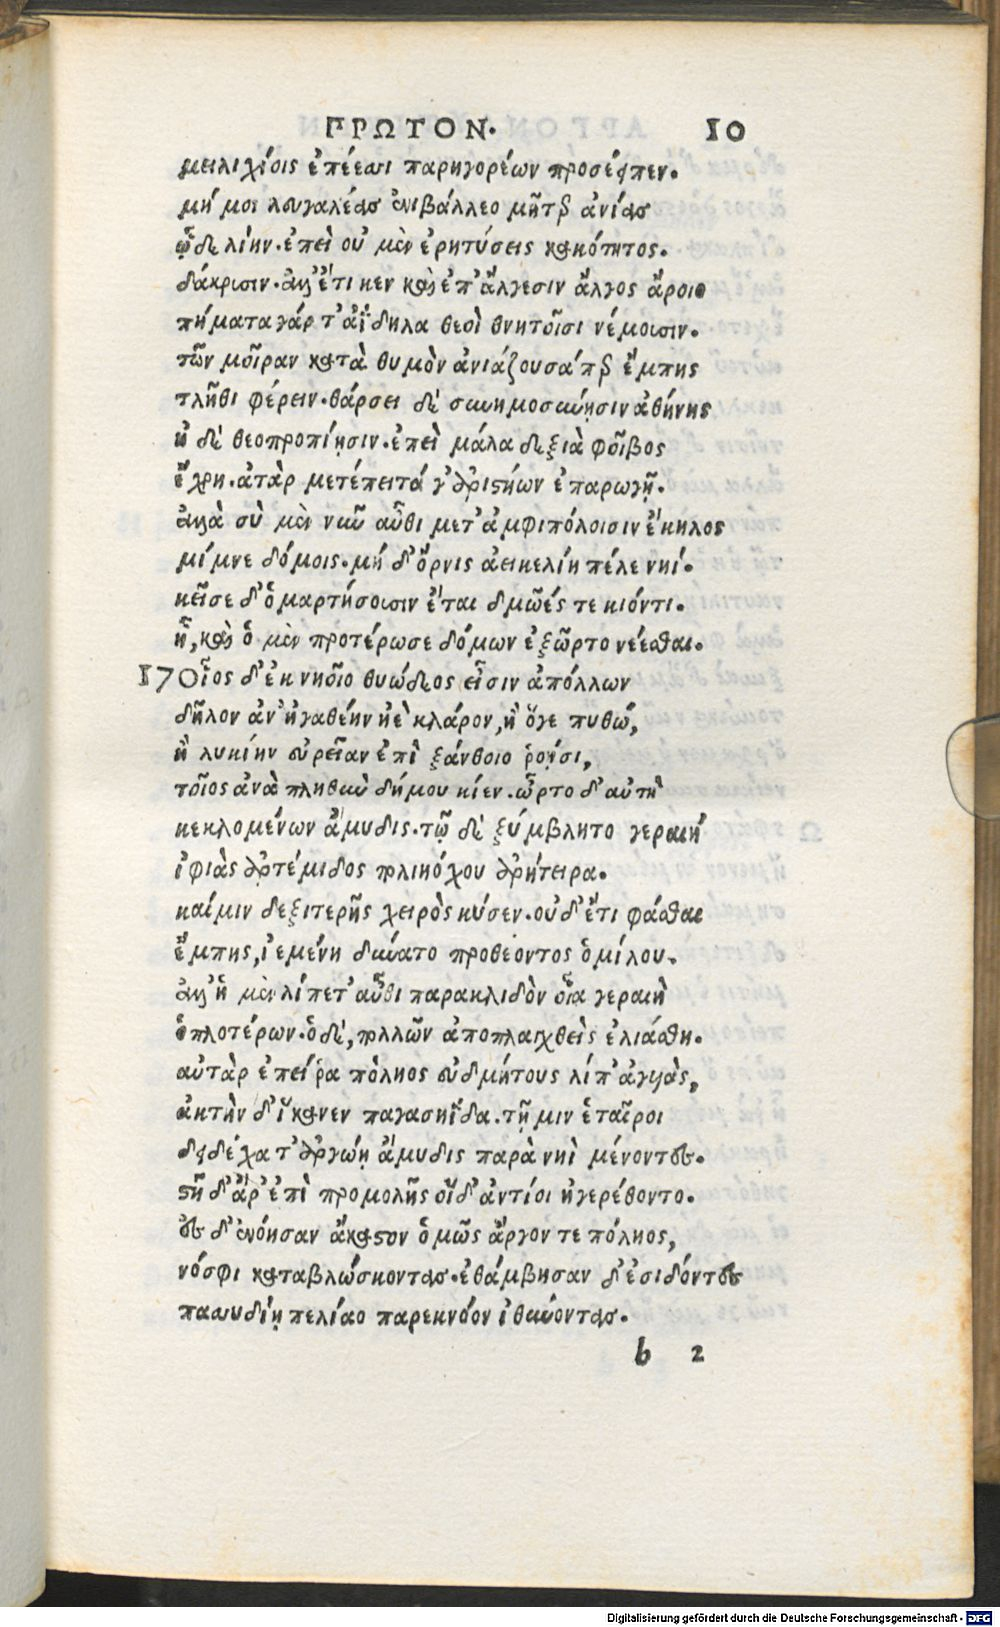 ΠΡΩΤΟΝ. 10
μειλιχίοις ἐπέεσσι παρηγορέων προσέειπεν.
μή μοι λευγαλέας ἐνιβάλλεο μῆτερ ἀνίας
ᾧδε λίην. ἐπεὶ οὐ μὲν ἐρητύσεις κακότητος.
δάκρυσιν. ἀλλ' ἔτι κεν καὶ ἐπ' ἄλγεσιν ἄλγος ἄροιο
πήματα γάρ τ' ἀΐδηλα θεοὶ θνητοῖσι νέμουσιν.
τῶν μοῖραν κατὰ θυμὸν ἀνιάζουσά περ ἔμπης
τλῆθι φέρειν. θάρσει δὲ συνημοσύνῃσιν ἀθήνης
ἠ δὲ θεοπροπίῃσιν. ἐπεὶ μάλα δεξιὰ φοῖβος
ἔχρη. ἀτὰρ μετέπειτά γ' ἀριστήων ἐπαρωγῇ.
ἀλλὰ σὺ μὲν νῦν αὖθι μετ' ἀμφιπόλοισιν ἕκηλος
μίμνε δόμοις. μή δ' ὄρνις ἀεικελίη πέλε νηί.
κεῖσε δ' ὁμαρτήσουσιν ἔται δμῶές τε κιόντι.
ἦ, καὶ ὁ μὲν προτέρωσε δόμων ἐξῶρτο νέεσθαι.
170 οἷος δ' ἐκ νηοῖο θυώδεος εἶσιν ἀπόλλων
δῆλον ἀν' ἠγαθέην ἠὲ κλάρον, ἢ ὅγε πυθώ,
ἢ λυκίην εὐρεῖαν ἐπὶ ξάνθοιο ῥοῇσι,
τοῖος ἀνὰ πληθὺν δήμου κίεν. ὦρτο δ' αὐτὴ
κεκλομένων ἄμυδις. τῷ δὲ ξύμβλητο γεραιή
ἰφιὰς ἀρτέμιδος πολιηόχου ἀρήτειρα.
καί μιν δεξιτερῆς χειρὸς κύσεν. οὐδ' ἔτι φάσθαι
ἔμπης, ἱεμένη δύνατο προθέοντος ὁμίλου.
ἀλλ' ἡ μὲν λίπετ' αὖθι παρακλιδὸν οἷα γεραιὴ
ὁπλοτέρων. ὁ δὲ, πολλῶν ἀποπλαγχθεὶς ἐλιάσθη.
αὐτὰρ ἐπεί ῥα πόληος ἐυδμήτους λίπ' ἀγυιὰς,
ἀκτὴν δ' ἵκανεν παγασηΐδα. τῇ μιν ἑταῖροι
δειδέχατ' ἀργώῃ ἄμυδις παρὰ νηὶ μένοντες.
στῆ δ' ἄρ' ἐπὶ προμολῆς οἵ δ' ἀντίοι ἠγερέθοντο.
ἐς δ' ἐνόησαν ἄκαστον ὁμῶς ἄργον τε πόληος,
νόσφι καταβλώσκοντας. ἐθάμβησαν δ' ἐσιδόντες
πασσυδίῃ πελίαο παρεκνόον ἰθύοντας.
b 2
Digitalisierung gefördert durch die Deutsche Forschungsgemeinschaft - DFG